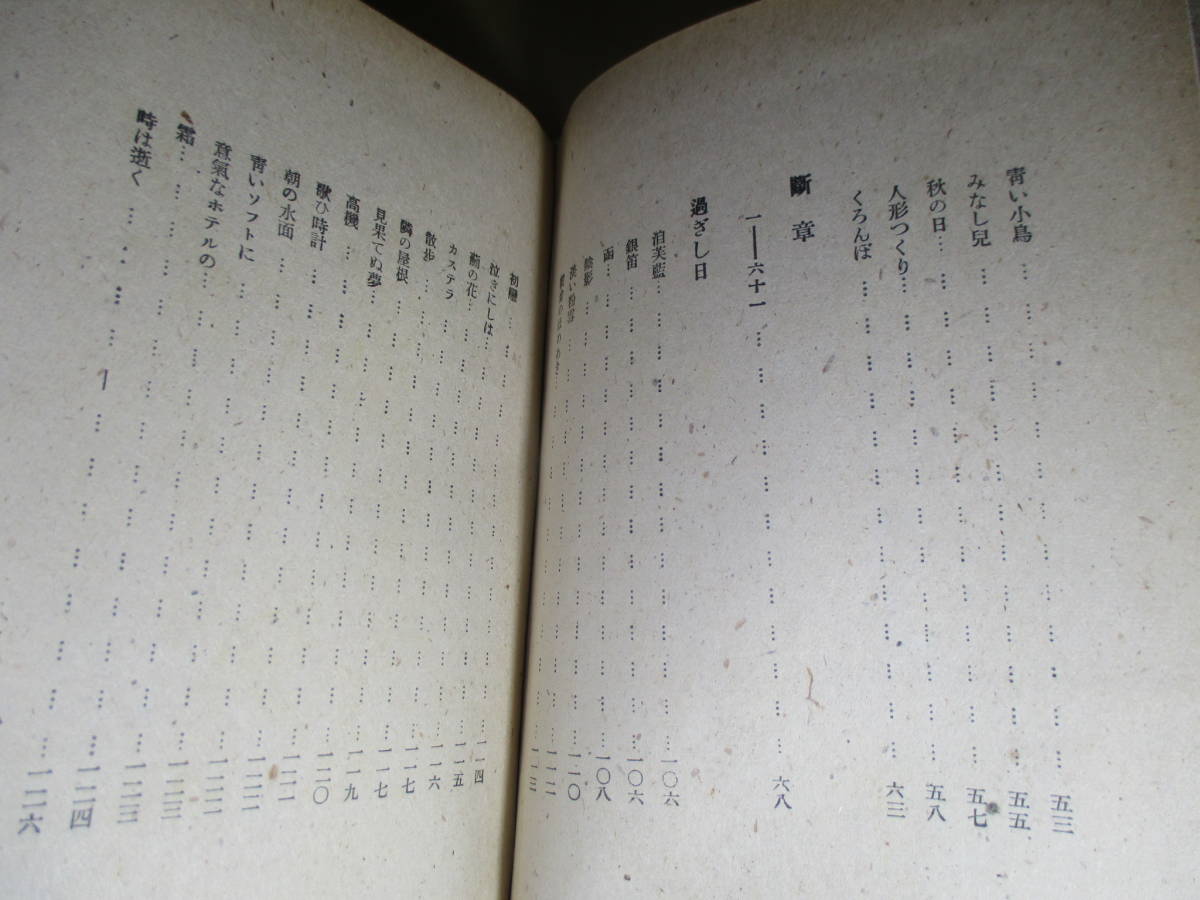 青い小鳥………………五三
みなし兒………………五五
秋の日………………五七
人形つくり………………五八
くろんぼ………………六三
斷章
一――六十一………………六八
過ぎし日
泊芙藍………………一〇六
銀笛………………一〇六
凾………………一〇八
陰影………………一一〇
淡い粉雪………………一一二
………………一一三
初戀………………一一四
泣きにしは………………一一五
薊の花………………一一六
カステラ………………一一七
散步………………一一七
隣の屋根………………一一九
見果てぬ夢………………一二〇
高機………………一二一
歌ひ時計………………一二二
朝の水面………………一二二
青いソフトに………………一二三
意氣なホテルの………………一二三
霜………………一二四
時は逝く………………一二六